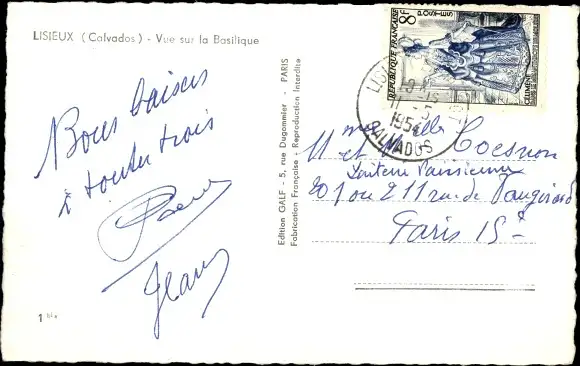 LISIEUX (Calvados) - Vue sur la Basilique
Bons baisers
à toutes trois
Jean
1 bis
Edition GALF - 5, rue Dugommier - PARIS
Fabrication Française - Reproduction Interdite
8F
POSTES
REPUBLIQUE FRANÇAISE
CELIMENE
LISIEUX
11 - 5
1954
CALVADOS
Mme Mlle Coesnon
et
Laiterie Parisienne
201 ou 211 rue de Vaugirard
Paris 15e